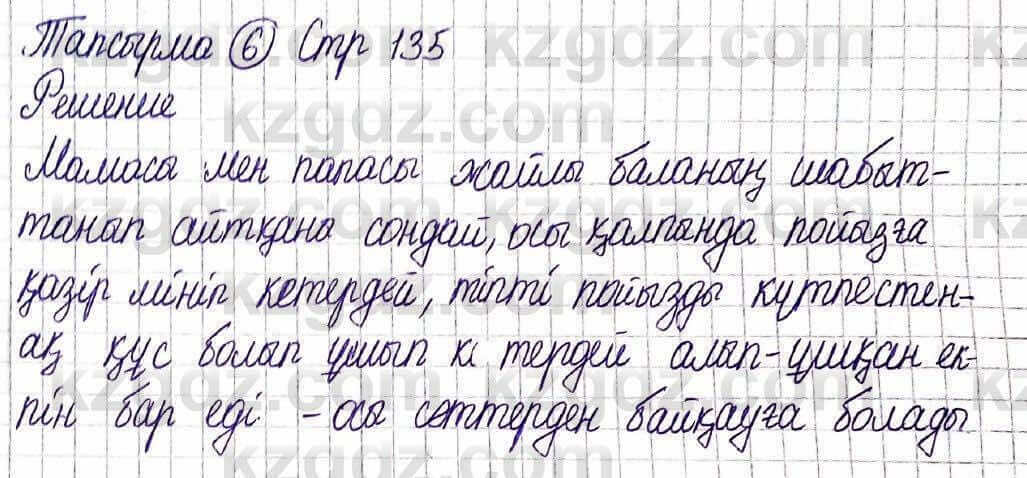 Тапсырма 6 Стр 135
Решение
Мамасы мен папасы жайлы баланың шабыт-
танып айтқаны сондай, осы қалпында пойызға
қазір мініп кетердей, тіпті пойызды күтпестен-
ақ құс болып ұшып кетердей алып-ұшқан ек-
пін бар еді - осы сөттерден байқауға болады
kzgdz.com